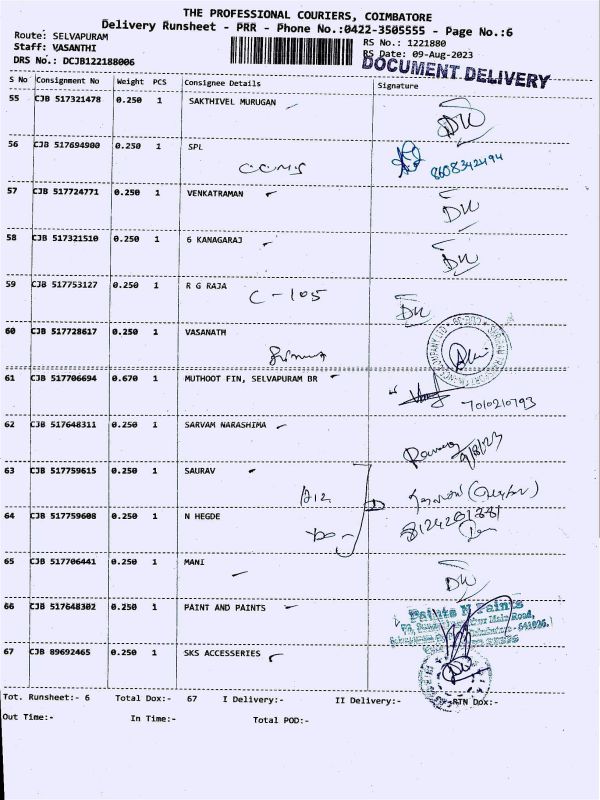 THE PROFESSIONAL COURIERS, COIMBATORE
Delivery Runsheet - PRR - Phone No.:0422-3505555 - Page No.:6
Route: SELVAPURAM
RS No.: 1221880
Staff: VASANTHI
RS Date: 09-Aug-2023
DRS No.: DCJB122188006
DOCUMENT DELIVERY
S No Consignment No Weight PCS Consignee Details Signature
55 CJB 517321478 0.250 1 SAKTHIVEL MURUGAN
56 CJB 517694900 0.250 1 SPL
8608342494
57 CJB 517724771 0.250 1 VENKATRAMAN
58 CJB 517321510 0.250 1 G KANAGARAJ
59 CJB 517753127 0.250 1 R G RAJA
C - 105
60 CJB 517728617 0.250 1 VASANATH
61 CJB 517706694 0.670 1 MUTHOOT FIN, SELVAPURAM BR
7010210793
62 CJB 517648311 0.250 1 SARVAM NARASHIMA
9/8/23
63 CJB 517759615 0.250 1 SAURAV
64 CJB 517759608 0.250 1 N HEGDE
65 CJB 517706441 0.250 1 MANI
66 CJB 517648302 0.250 1 PAINT AND PAINTS
Paints N Paints
Main Road,
67 CJB 89692465 0.250 1 SKS ACCESSERIES
Tot. Runsheet:- 6 Total Dox:- 67 I Delivery:- II Delivery:- RTN Dox:-
Out Time:- In Time:- Total POD:-